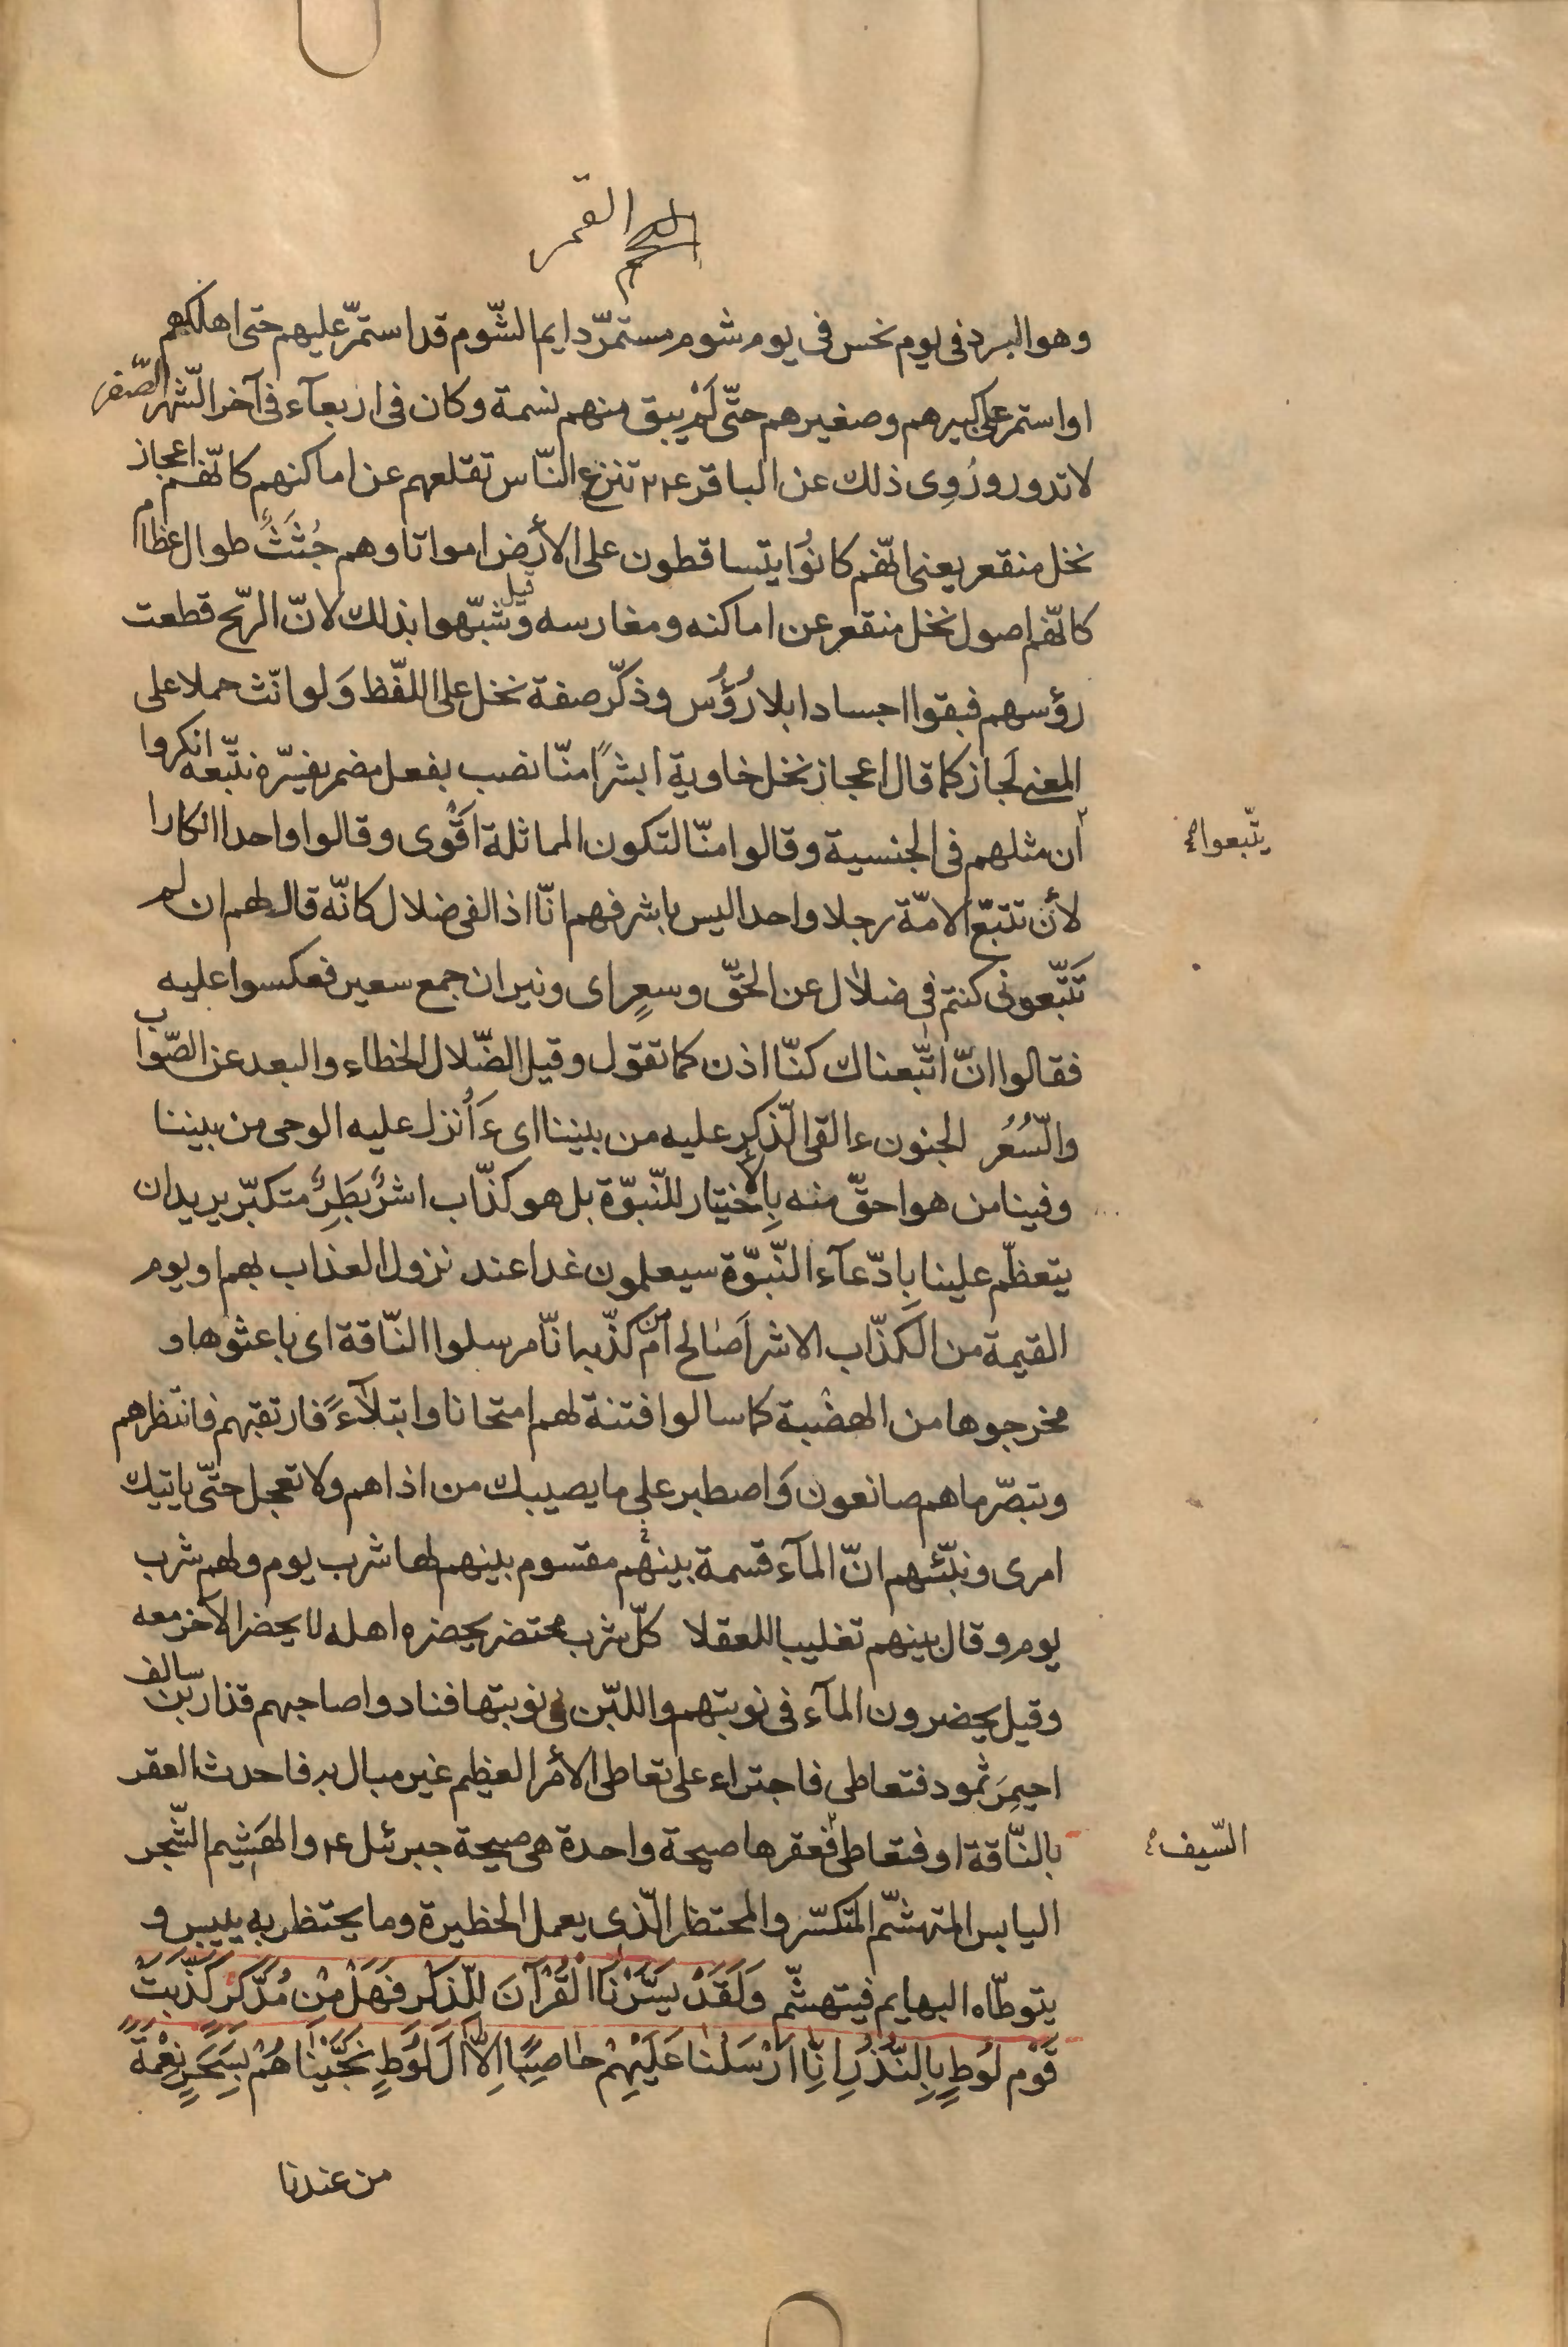 القمر
وهو البرد فى يوم نحس فى يوم شوم مستمرّ دايم الشّوم قد استمرّ عليهم حتى اهلكهم
او استمر على كبيرهم وصغيرهم حتّى لَمْ يبق منهم نسمة وكان فى اربعآء فى آخر الشّهر الصّفر
لا تدور ورُوِى ذلك عن الباقر ع٢٢ تنزع النّاس تقلعهم عن اماكنهم كانّهم اعجاز
نخل منقعر يعنى انّهم كانُوا يتساقطون على الأرض امواتا وهم جُثَثٌ طوال عظام
كانّهم اصول نخل منقعر عن اماكنه ومغارسه وقيل شبّهوا بذلك لانّ الرّيح قطعت
رؤسهم فبقوا اجسادا بلا رُؤُس وذكّر صفة نخل على اللفّظ وَلو انّث حملا على
المعنى لَجاز كما قال اعجاز نخل خاوية ابشرًا منّا نصب بفعل مضمر يفسّره نتّبعه انكروا
آن مثلهم فى الجنسية وقالوا منّا لتكون المماثلة اقْوى وقالوا واحدا انكارا
يتّبعوا
لأن تتبّع الامّة رجلا واحدا ليس باشرفهم انّا اذا لفى ضلال كانّه قال لهم ان لم
تَتّبعونى كنتم فى ضلال عن الحقّ وسعرٍ اى ونيران جمع سعير فعكسوا عليه
فقالوا انّ اتّبعناك كنّا اذن كما تقول وقيل الضّلال الخطاء والبعد عن الصّواب
والسُّعُر الجنون ءالقى الّذكر عليه من بيننا اى ءَأُنزل عليه الوحى من بيننا
وفينا من هو احقّ منه بِالأختيار للنّبوّة بل هو كذّاب اشرٌ بَطِرٌ متكبّر يريد ان
يتعظّم علينا بِادّعآء النّبوّة سيعلمون غدا عند نزول العذاب بهم او يوم
القيمة من الكذّاب الاشر اَصالح ام من كذّبه انّا مرسلوا النّاقة اى باعثوها و
مخرجوها من الهضْبة كما سالوا فتنة لهم امتحانا وابتلآءً فارتقبهم فانتظرهم
وتبصّر ما هم صانعون وَاصطبر على ما يصيبك من اذاهم ولا تعجل حتّى ياتيك
امرى ونبّئهم انّ المآء قسمة بينهم مقسوم بينهم لها شرب يوم ولهم شرب
يوم وقال بينهم تغليبا للعقلا كلّ شرب محتضر يحضره اهله لا يحضر الآخر معه
وقيل يحضرون المآء فى نوبتهم واللبّن فى نوبتها فنادوا صاحبهم قذار بن سالف
احيمِرَ ثمود فتعاطى فاجتراء على تعاطى الأمر العظيم غير مبال به فاحدث العقر
بالنّاقة او فتعاطى فعقرها صيحة واحدة هى صيحة جبرئل ع٢ والهَشيم الشّجر
السّيف
اليابس المتهشّم المتكسّر والمحتظر الّذى يعمل الحظيرة وما يحتظر به ييبس و
يتوطّاه البهايم فيتهشّم وَلَقَدْ يَسَّرْنَا الْقُرْآنَ للّذكر فَهَلْ مِنْ مُدَّكَرٍ كَذَّبَتْ
قَوْم لُوطٍ بِالنُّذُرِ اِنَّا اَرْسَلْنا عَلَيْهِمْ حاصِبًا اِلاّ آلَ لُوطٍ نَجَّيْناهُمْ بِسَحَرٍ نِعْمَةً
من عندنا